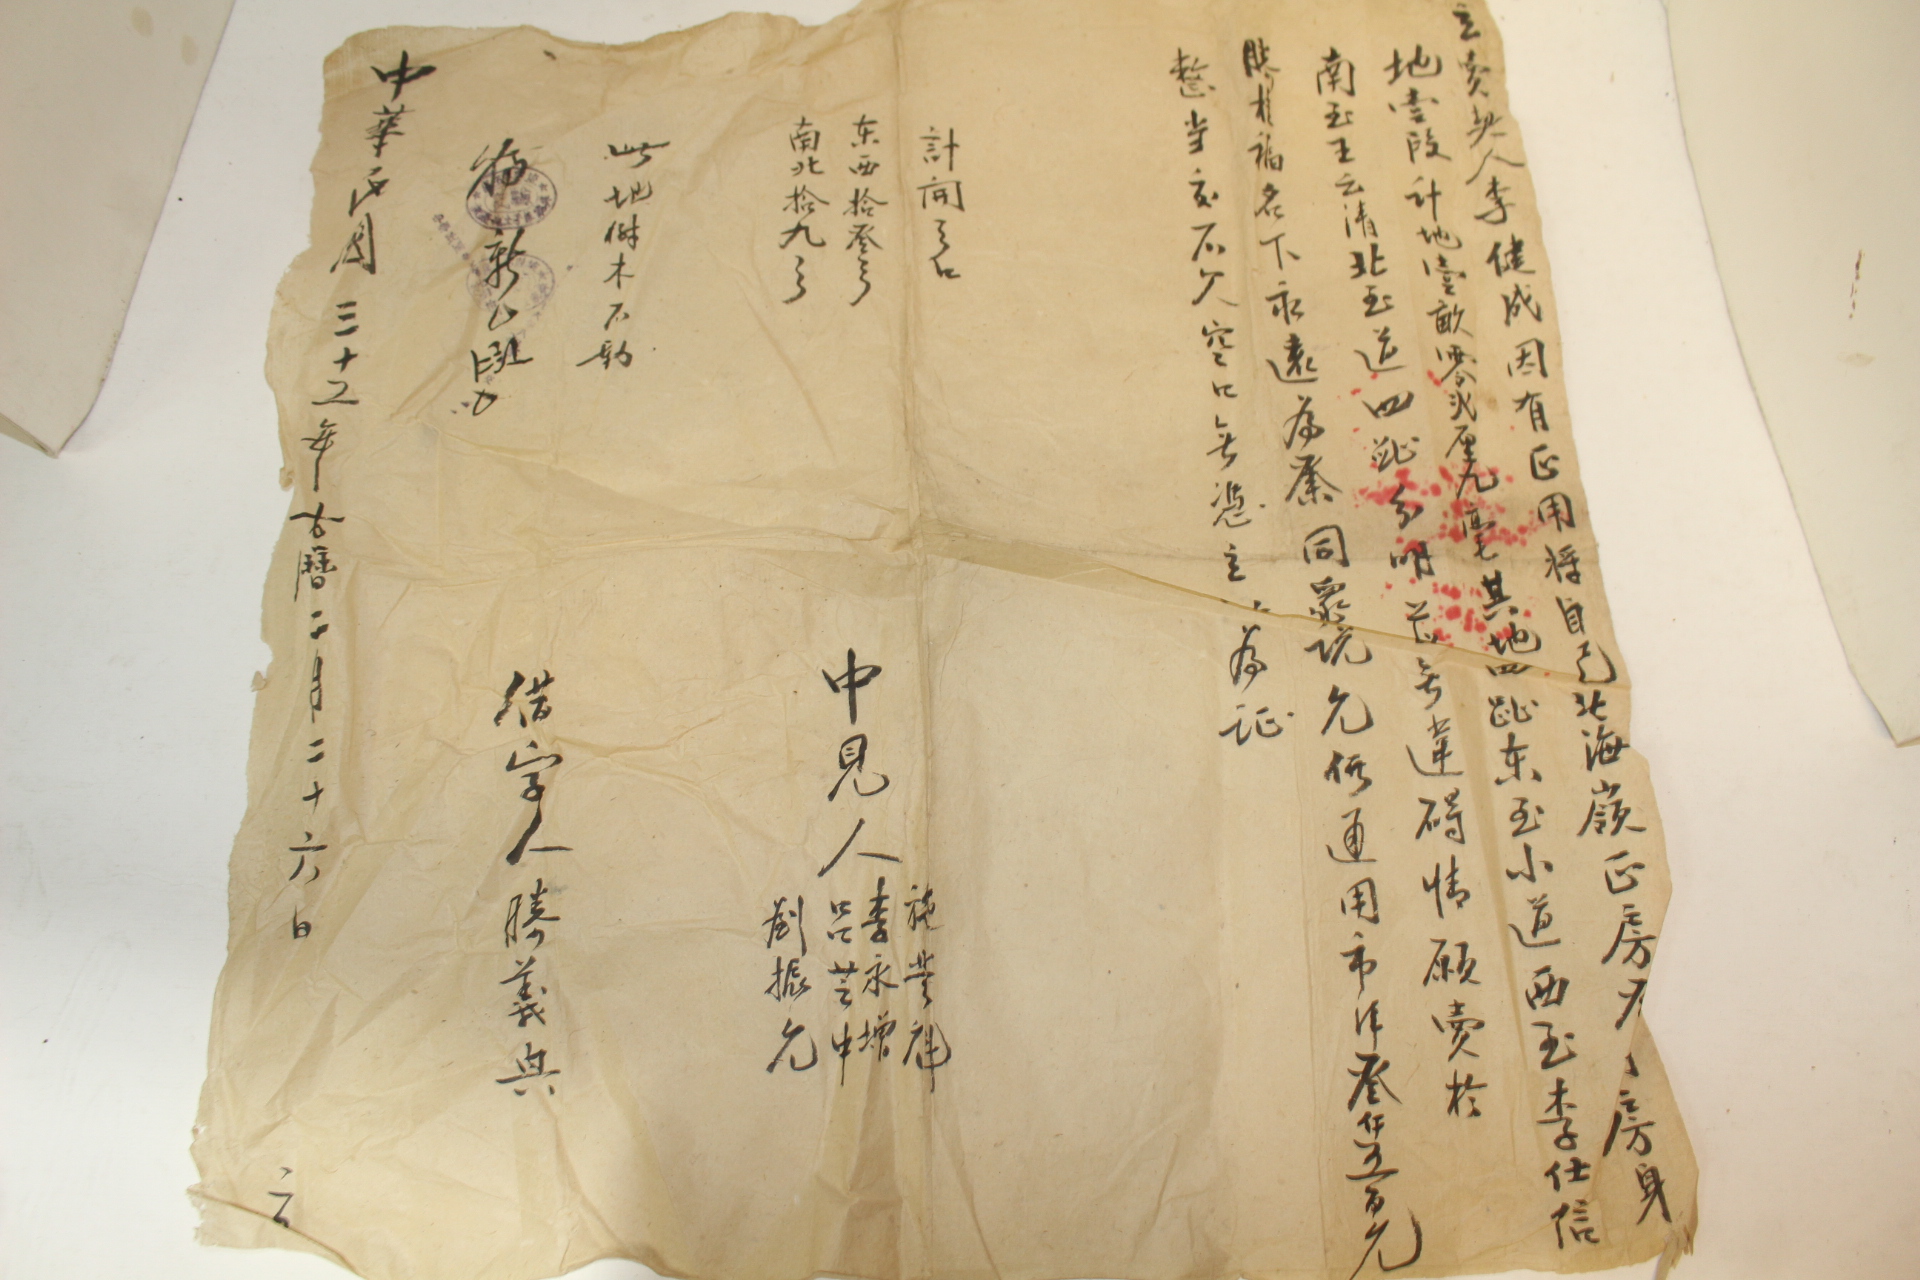 立賣契人李健成因有正用將自己北海嶺正房房身
地壹段計地壹畝零弍厘九毫其地四趾东至小道西至李仕信
南至王云清北至道四趾分明並無違碍情願賣於
勝桂福名下永遠為業同衆說允價通用市洋叁仟五百元
整當交不欠空口無憑立為証
計開弓口
东西拾叁弓
南北拾九弓
此地樹木不動
中見人
李永增
呂芸申
劉振允
借字人勝義興
中華民国三十五年古曆二月二十六日
立